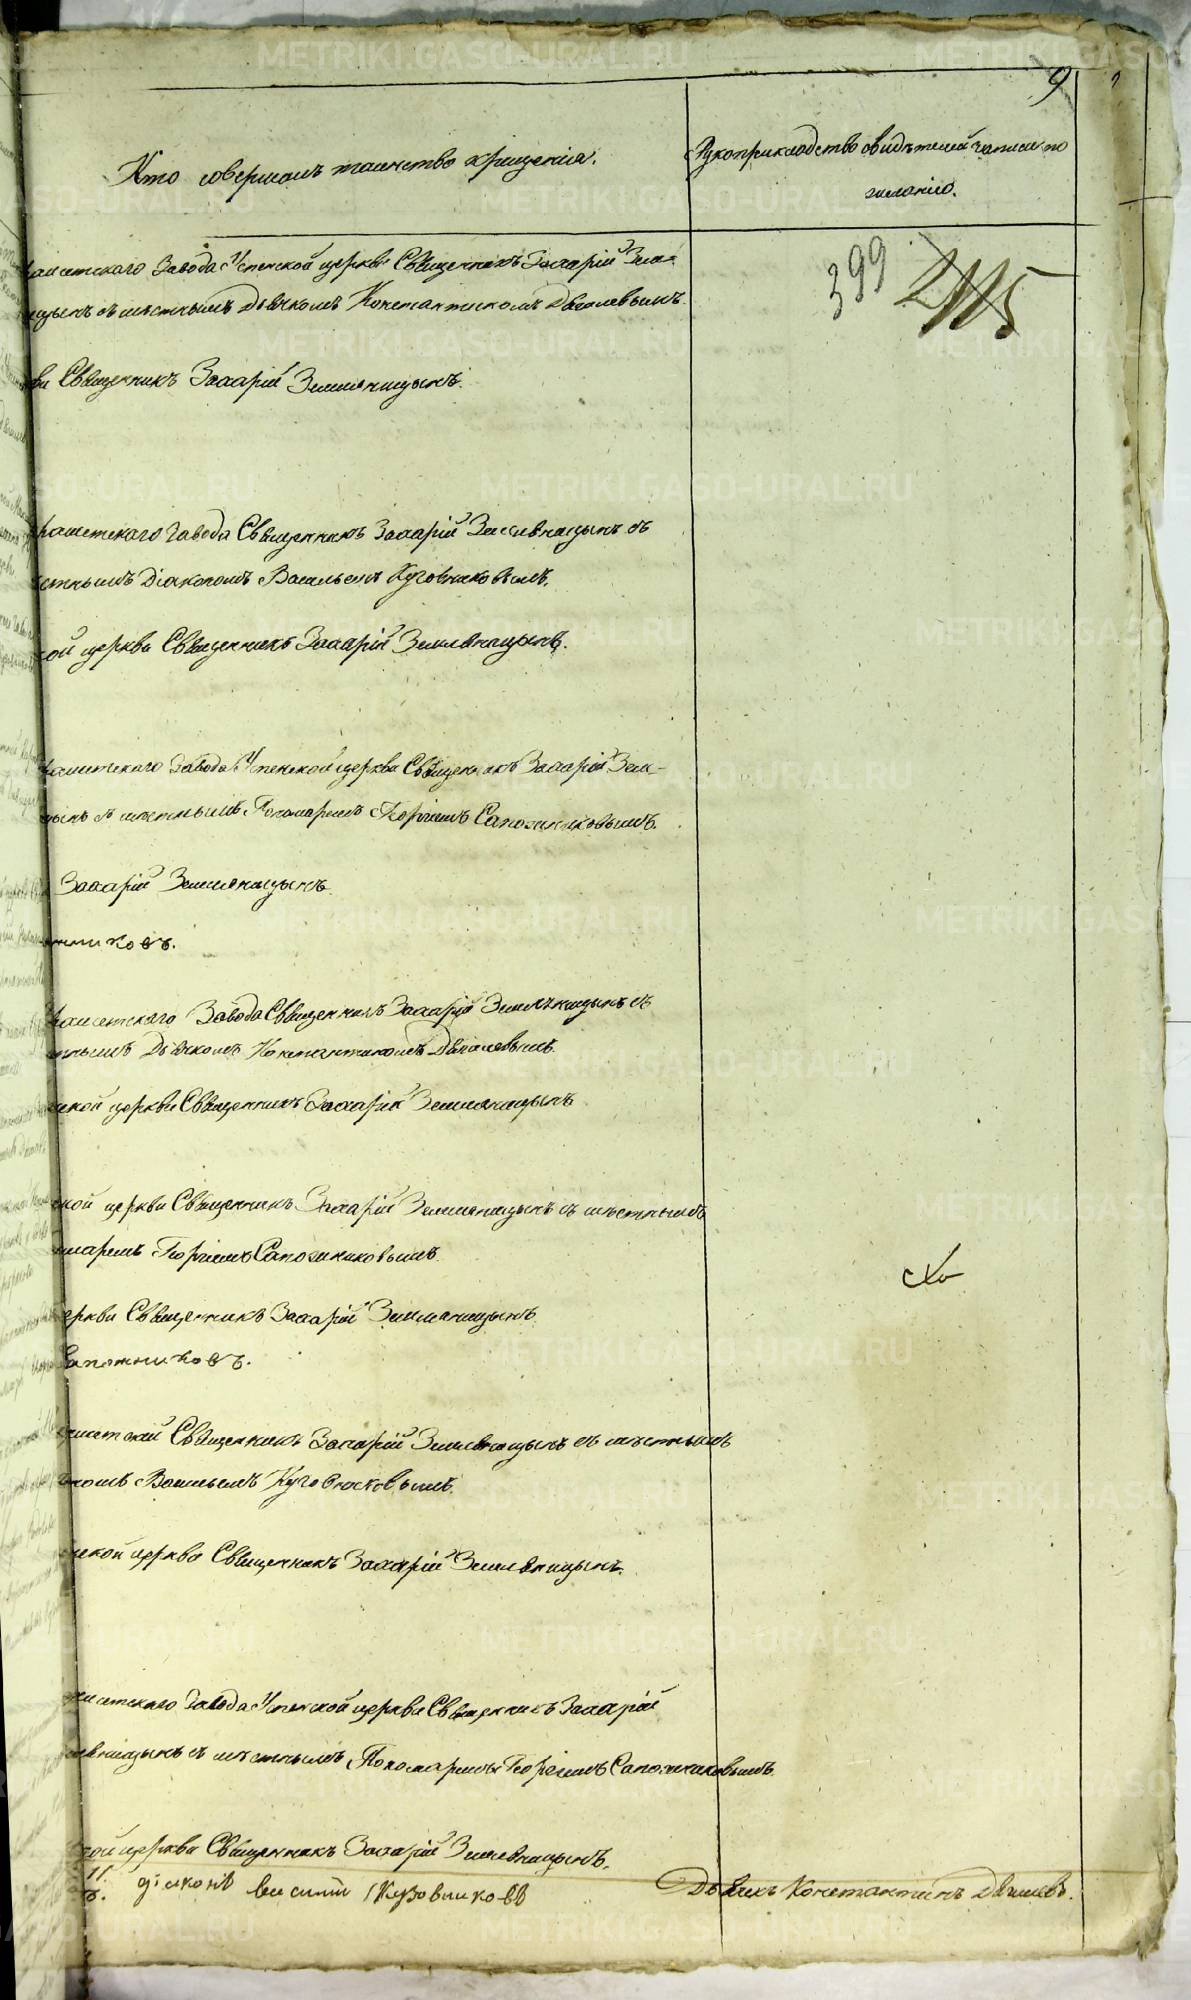 9
Кто совершалъ таинство крещенія.
Рукоприкладство свидѣтелей записи по
желанію.
399
2115
Завода Успенской церкви Священникъ Захарій Земля-
ницынъ съ мѣстнымъ Дьячкомъ Константиномъ
Священникъ Захарій Земляницынъ.
Завода Священникъ Захарій Земляницынъ съ
Діакономъ Васильемъ Кузовниковымъ.
церкви Священникъ Захарій Земляницынъ.
Завода Успенской церкви Священникъ Захарій Земля-
съ мѣстнымъ Пономаремъ Георгіемъ Сапожниковымъ.
Захарій Земляницынъ
Завода Священникъ Захарій Земляницынъ съ
Дьячкомъ Константиномъ
церкви Священникъ Захарій Земляницынъ
церкви Священникъ Захарій Земляницынъ съ мѣстнымъ
Георгіемъ Сапожниковымъ.
Священникъ Захарій Земляницынъ
Сапожниковъ.
Священникъ Захарій Земляницынъ съ мѣстнымъ
Васильемъ Кузовниковымъ.
церкви Священникъ Захарій Земляницынъ.
Завода Успенской церкви Священникъ Захарій
съ мѣстнымъ Пономаремъ Георгіемъ Сапожниковымъ.
церкви Священникъ Захарій Земляницынъ.
діаконъ василій Кузовниковъ
Дьячекъ Константинъ
METRIKI.GASO-URAL.RU